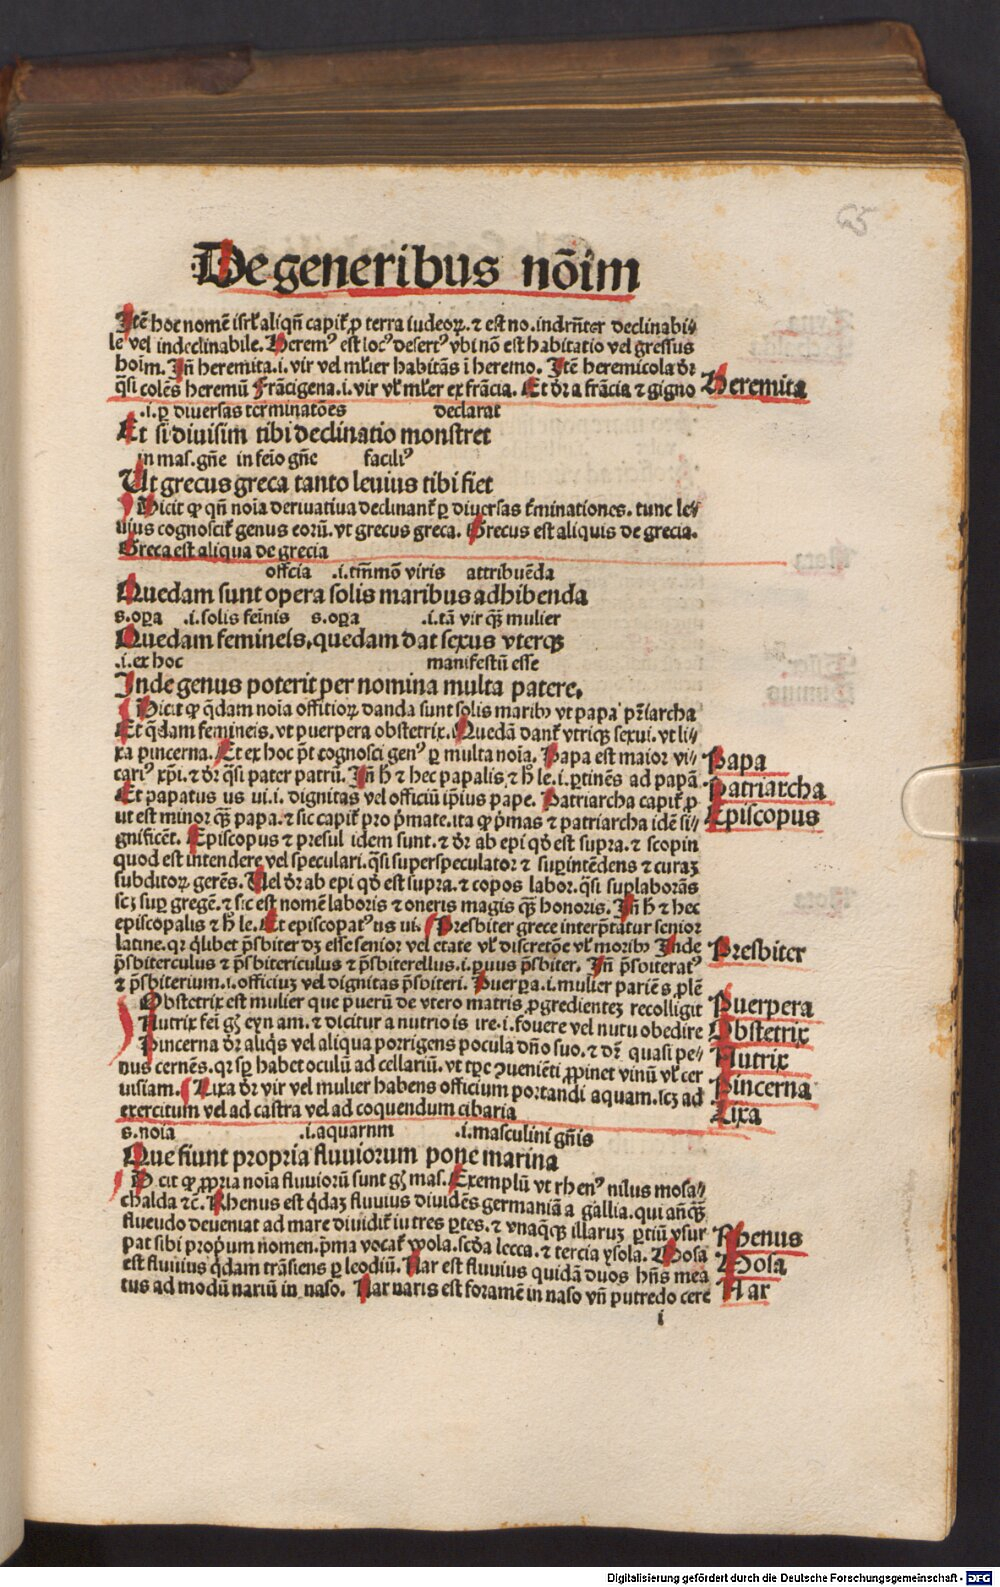 De generibus nōim
Itē hoc nomē isrl̄ aliqn̄ capit̄ ꝓ terra iudeoꝝ. ⁊ est no. indrn̄ter declinabi⸗
le vel indeclinabile. Heremꝰ est locꝰ desertꝰ vbi nō est habitatio vel gressus
hoīm. Jn̄ heremita .i. vir vel ml̄ier habitās ī heremo. Itē heremicola dr̄
Heremita
q̄si colēs heremū Frācigena .i. vir vl̄ ml̄ier ex frācia. Et dr̄ a frācia ⁊ gigno
.i. ꝑ diuersas terminatōes declarat
Et si diuisim tibi declinatio monstret
in mas. gn̄e in feīo gn̄e faciliꝰ
Ut grecus greca tanto leuius tibi fiet
Dicit ꝙ qn̄ noīa deriuatiua declinant̄ ꝑ diuersas t̄minationes. tunc le⸗
uius cognoscit̄ genus eorū. vt grecus greca. Grecus est aliquis de grecia.
Greca est aliqua de grecia
offcia .i. tm̄mō viris attribuēda
Quedam sunt opera solis maribus adhibenda
s. oꝑa .i. solis feīnis s. oꝑa .i. tā vir qꝫ mulier
Quedam femineis, quedam dat sexus vterqꝫ
.i. ex hoc manifestū esse
Inde genus poterit per nomina multa patere.
Dicit ꝙ q̄dam noīa offitioꝝ danda sunt solis maribꝰ vt papa pr̄iarcha
Et q̄dam femineis. vt puerpera obstetrix. Quedā dant̄ vtriqꝫ sexui. vt li⸗
xa pincerna. Et ex hoc pt̄ cognosci genꝰ ꝑ multa noīa. Papa est maior vi⸗
Papa
cariꝰ xp̄i. ⁊ dr̄ q̄si pater patrū. Jn̄ h̄ ⁊ hec papalis ⁊ h̄ le .i. ꝑtinēs ad papā
Patriarcha
Et papatus us ui .i. dignitas vel officiū ip̄ius pape. Patriarcha capit̄ ꝓ
Episcopus
ut est minor qꝫ papa. ⁊ sic capit̄ pro p̄mate. ita ꝙ p̄mas ⁊ patriarcha idē si⸗
gnificēt. Episcopus ⁊ presul idem sunt. ⁊ dr̄ ab epi qd̄ est supra. ⁊ scopin
quod est intendere vel speculari. q̄si superspeculator ⁊ suꝑintēdens ⁊ curaꝫ
subditoꝝ gerēs. Uel dr̄ ab epi qd̄ est supra. ⁊ copos labor. q̄si suꝑlaborās
scꝫ suꝑ gregē. ⁊ sic est nomē laboris ⁊ oneris magis qꝫ honoris. Jn̄ h̄ ⁊ hec
episcopalis ⁊ h̄ le. Et episcopatꝰ us ui. Presbiter grece interp̄tatur senior
latine. qr q̄libet p̄sbiter dꝫ esse senior vel etate vl̄ discretōe vl̄ moribꝰ Inde
Presbiter
p̄sbiterculus ⁊ p̄sbitericulus ⁊ p̄sbiterellus .i. ꝑuus p̄sbiter. Jn̄ p̄sbiteratꝰ
⁊ p̄sbiterium .i. officiuꝫ vel dignitas p̄sbiteri. Puerꝑa .i. mulier pariēs ꝓlē
Obstetrix est mulier que puerū de vtero matris ꝓgredienteꝫ recolligit
Puerpera
Nutrix feī gꝫ eyn am. ⁊ dicitur a nutrio is ire .i. fouere vel nutu obedire
Obstetrix
Pincerna dr̄ aliq̄s vel aliqua porrigens pocula dn̄o suo. ⁊ dr̄ quasi pe⸗
Nutrix
nus cernēs. qr sꝑ habet oculū ad cellariū. vt tꝑe ꝯueniēti ꝓpinet vinū vl̄ cer
Pincerna
uisiam. Lixa dr̄ vir vel mulier habens officium portandi aquam. scꝫ ad
Lixa
exercitum vel ad castra vel ad coquendum cibaria
s. noīa .i. aquarnm .i. masculini gn̄is
Que fiunt propria fluuiorum pone marina
D cit ꝙ ꝓpria noīa fluuiorū sunt gꝫ mas. Exemplū vt rhenꝰ nilus mosa⸗
chalda ⁊c̄. Rhenus est q̄daꝫ fluuius diuidēs germaniā a gallia. qui añqꝫ
flueudo deueniat ad mare diuidit̄ iu tres ꝑtes. ⁊ vnaq̄qꝫ illaruꝫ ꝑtiū vsur
Rhenus
pat sibi proṗum nomen. p̄ma vocat̄ wola. scd̄a lecca. ⁊ tercia ysola. Mosa
Mosa
est fluuius q̄dam trāsiens ꝑ leodiū. Nar est fluuius quidā duos hn̄s mea
Nar
tus ad modū nariū in naso. Nar naris est foramē in naso vn̄ putredo cere
i
Digitalisierung gefördert durch die Deutsche Forschungsgemeinschaft - DFG